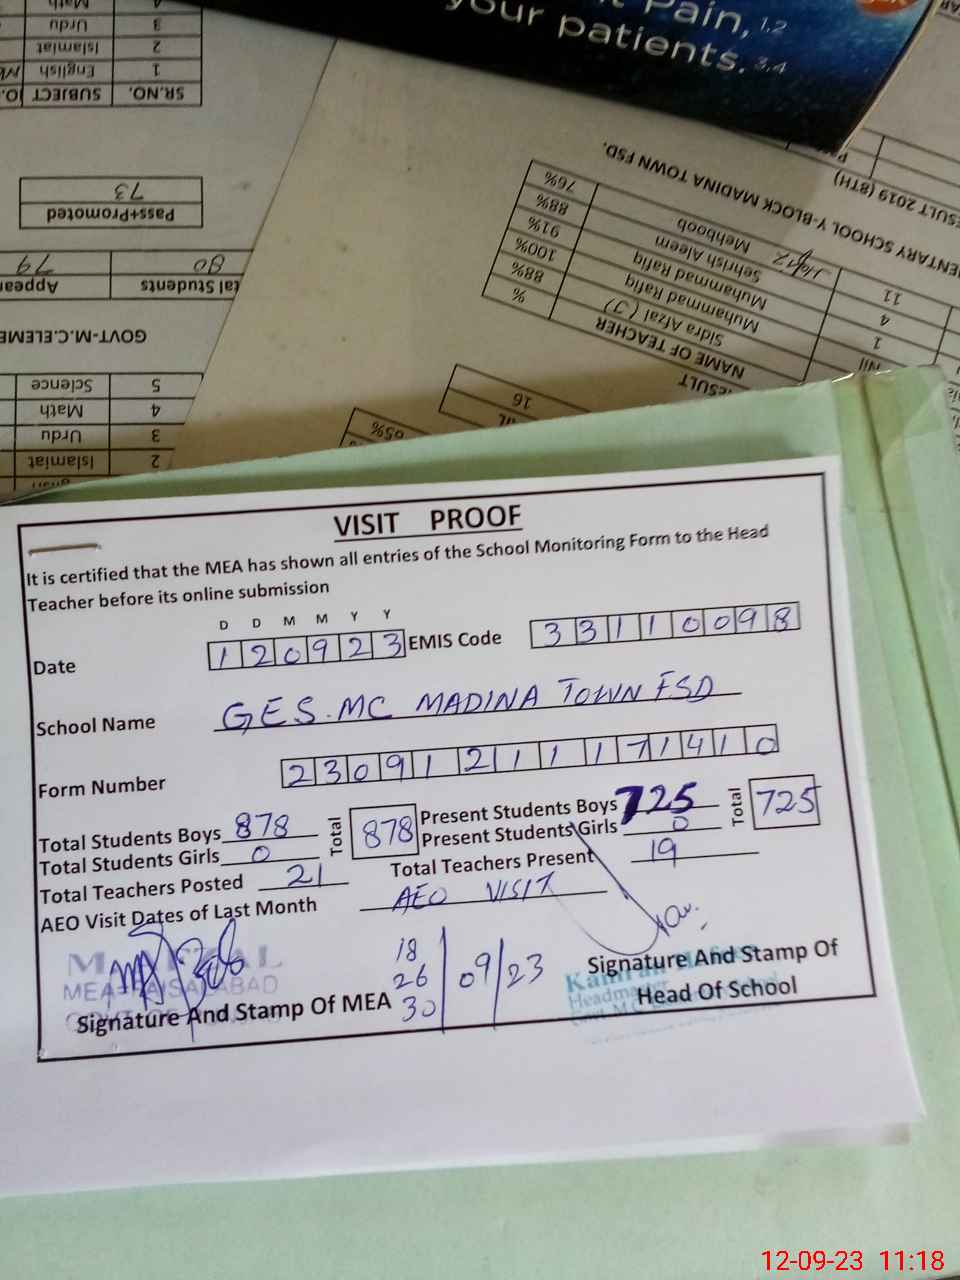 Pain, 1,2
your patients. 3,4
Math
3 Urdu
2 Islamiat
1 English
SR.NO. SUBJECT
73
Pass+Promoted
80 79
tal Students Appear
GOVT-M.C.ELEME
5 Science
4 Math
3 Urdu
2 Islamiat
ESULT 2019 (8TH)
ENTARY SCHOOL Y-BLOCK MADINA TOWN FSD.
11 Mehboob 76%
4 Sehrish Aleem 88%
1 Muhammad Rafiq 91%
Nil Muhammad Rafiq 100%
Sidra Afzal (J) 88%
NAME OF TEACHER %
16
65%
VISIT PROOF
It is certified that the MEA has shown all entries of the School Monitoring Form to the Head
Teacher before its online submission
D D M M Y Y
Date 120923 EMIS Code 33110098
School Name GES.MC MADINA TOWN FSD
Form Number 230912111171410
Total Students Boys 878 Total 878 Present Students Boys 725 Total 725
Total Students Girls 0 Present Students Girls 0
Total Teachers Posted 21 Total Teachers Present 19
AEO Visit Dates of Last Month AEO VISIT
18
26 /09/23
30
MEA-FAISALABAD
Signature And Stamp Of MEA
Signature And Stamp Of
Head Of School
Headmaster
12-09-23 11:18